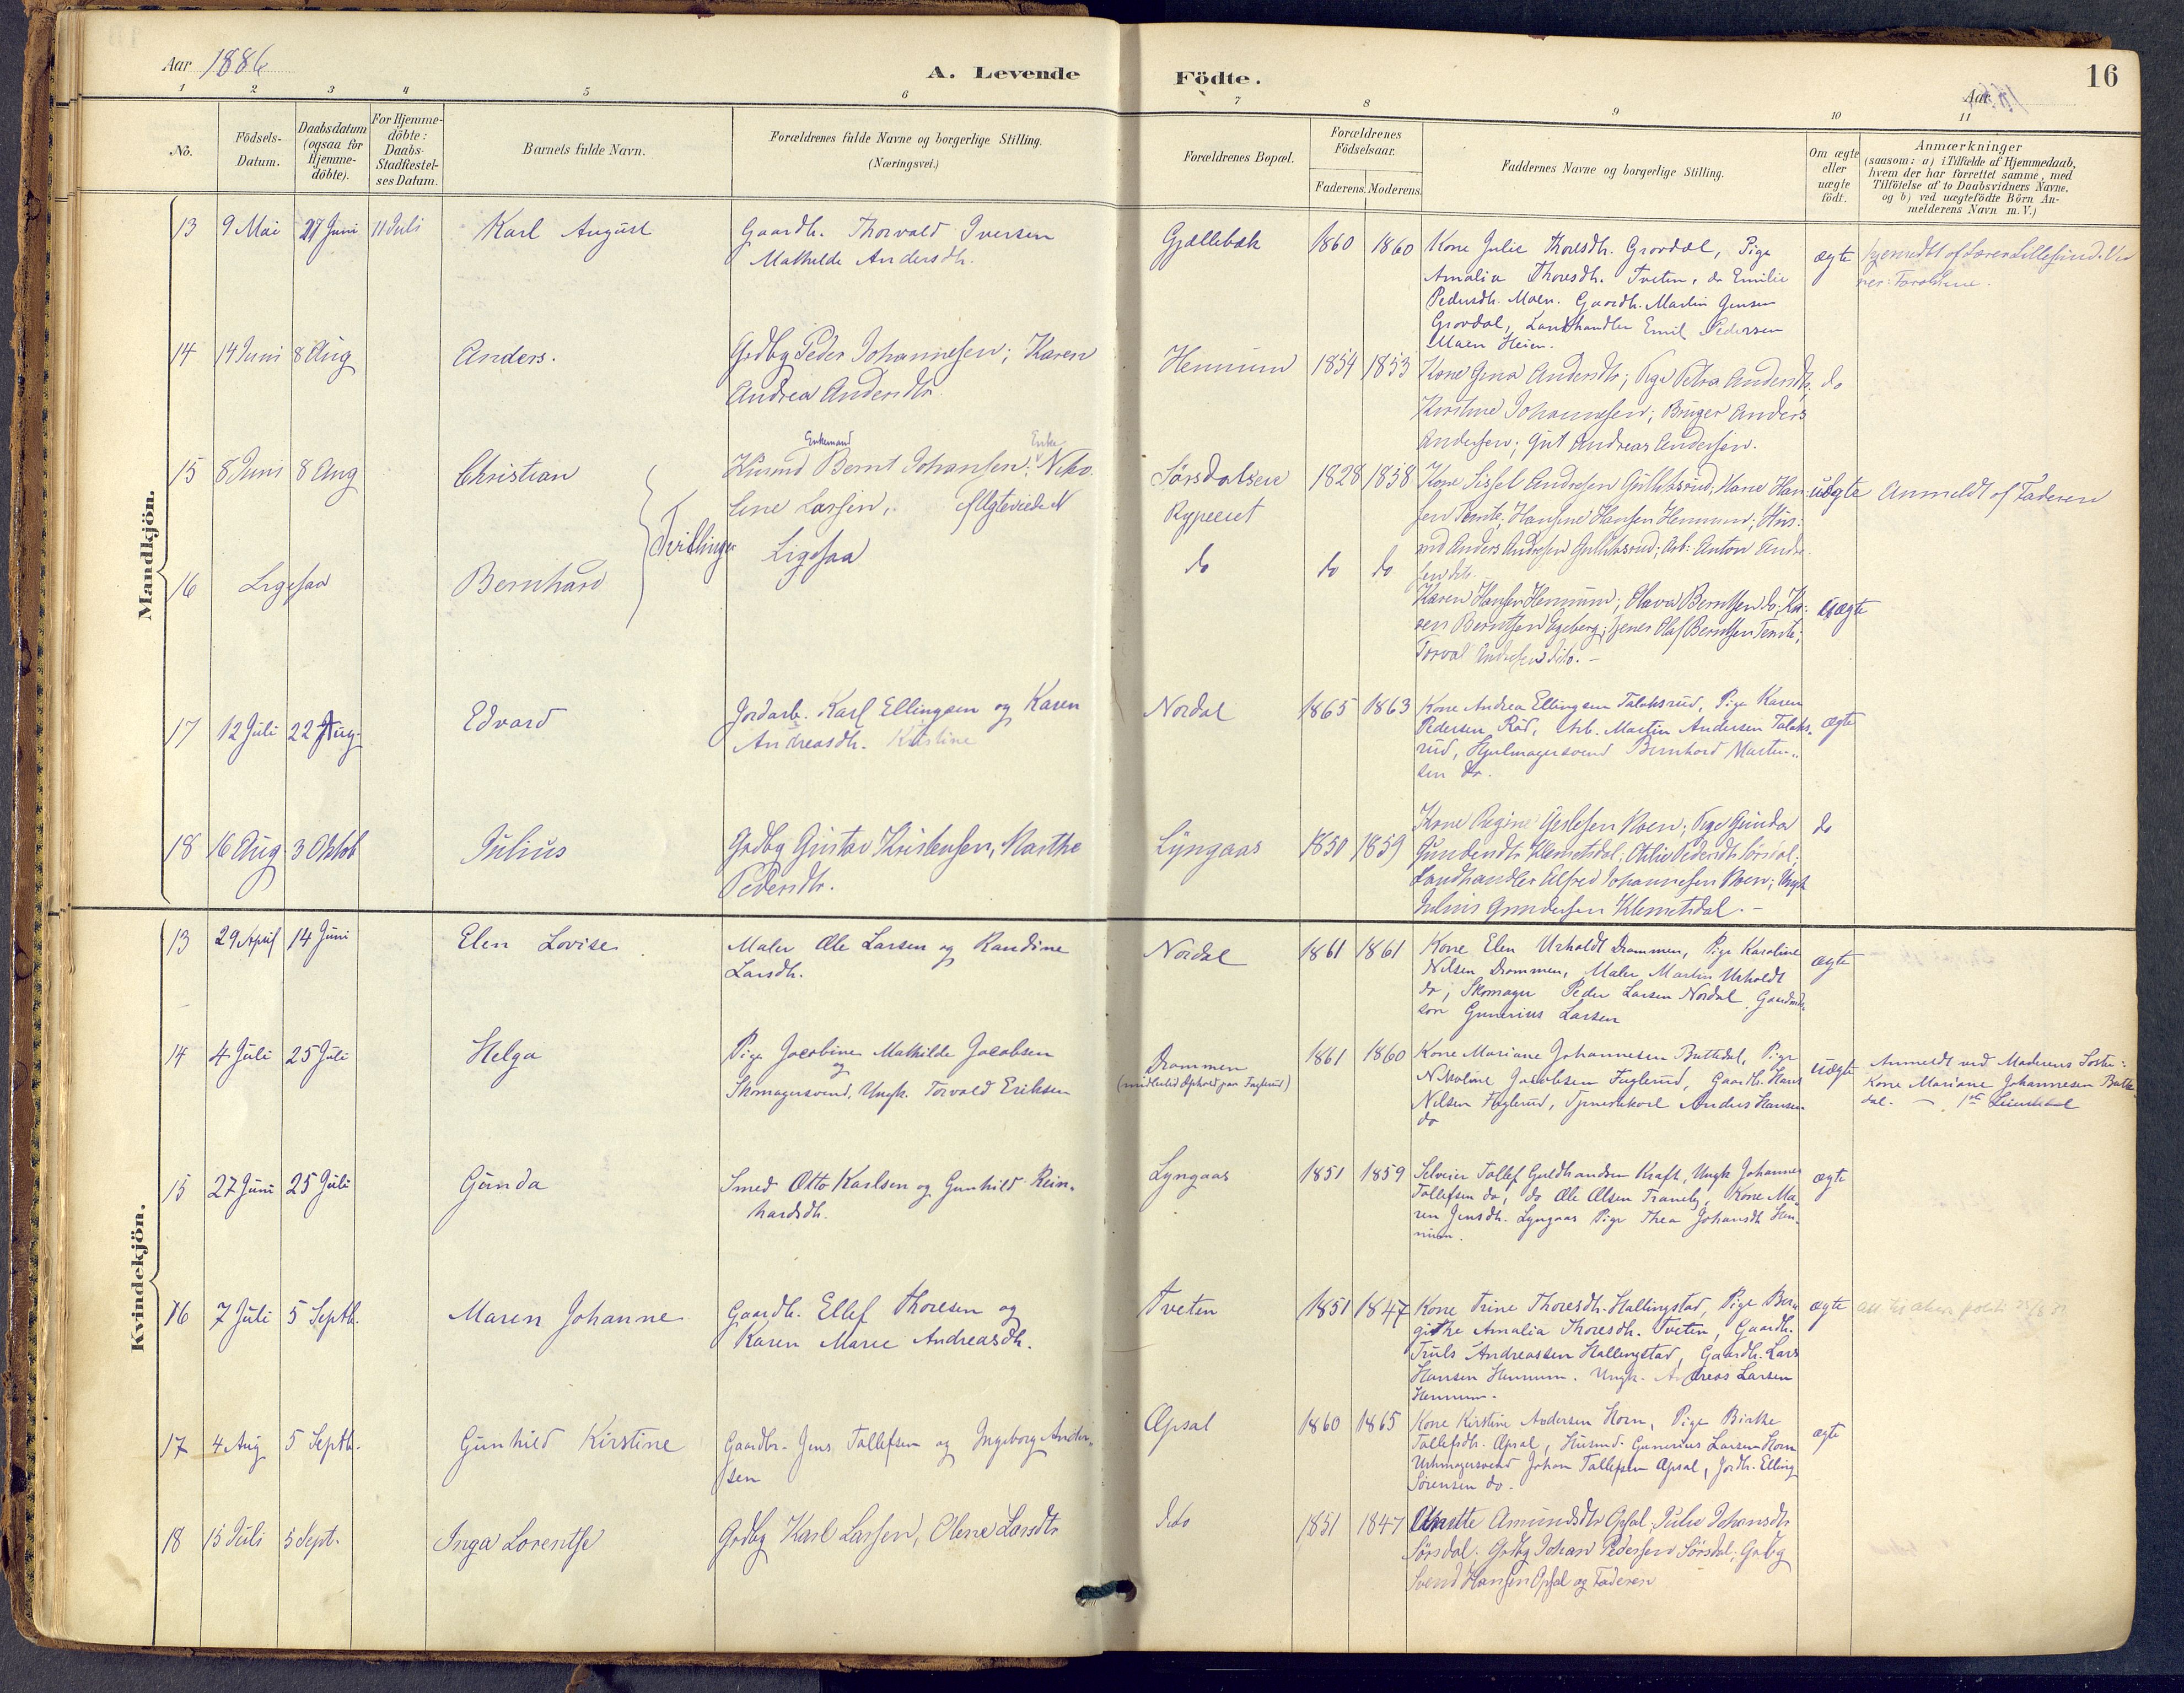 Aar 1886
A. Levende Födte.
16
Aar
1 2 3 4 5 6 7 8 9 10 11
No.
Födsels-Datum.
Daabsdatum (ogsaa for Hjemme-döbte).
For Hjemme-döbte: Daabs-Stadfæstel-ses Datum.
Barnets fulde Navn.
Forældrenes fulde Navne og borgerlige Stilling.
(Næringsvei.)
Forældrenes Bopæl.
Forældrenes Födselsaar.
Faderens. Moderens.
Faddernes Navne og borgerlige Stilling.
Om ægte eller uægte födt.
Anmærkninger
(saasom: a) i Tilfælde af Hjemmedaab, hvem der har forrettet samme, med Tilföielse af to Daabsvidners Navne, og b) ved uægtefödte Börn An-melderens Navn m. V.)
Mandkjön.
13 9 Mai 27 Juni 11 Juli Karl August
Gaardb. Thorvald Iversen
Mathilde Andersdh.
Gjællebæk 1860 1860
Kone Julie Thoresdh. Grovdal, Pige
Amalia Thoresdh. Tveten, do Emilie
Pedersdh. Moen. Gaardb. Martin Jensen
Grovdal, Landhandler Emil Pedersen
Moen Heien.
ægte
14 14 Juni 8 Aug Anders.
Grdbg Peder Johannesen; Karen
Andrea Andersdtr
Hennum 1854 1853
Kone Gina Andersdtr; Pige Petra Andersdtr;
Kirstine Johannesen; Bruger Anders
Andersen; Gut Andreas Andersen.
do
15 8 Juni 8 Aug Christian
Enkemand Enke
Husmd Bernt Johansen; Niko-
line Larsen,
Tvillinger
Sørsdalseie
Rypeeiet
1828 1858
Kone Sissel Andresen Gulliksrud; Karie Han-
sen Temte; Hansine Hansen Hennum; Hus-
md Anders Andresen Gulliksrud; Arb: Anton Andre-
sen do.
uægte Anmeldt af Faderen
16 Ligesaa Bernhard
Ligesaa
do do do
Karen Hansen Hennum; Olava Berntsen do; Ka-
ren Berntsen Egeberg; Tjener Olaf Berntsen Temte;
Torval Andresen dito. -
uægte
17 12 Juli 22 Aug. Edvard
Jordarb. Karl Ellingsen og Karen
Andreasdh. Kristine
Nordal 1865 1863
Kone Andrea Ellingsen Talaksrud, Pige Karen
Pedersen Rød, Arb. Martin Andersen Talaks-
rud, Hjulmagersvend Bernhard Marten-
sen do.
ægte
18 16 Aug 3 Oktob Julius
Grdbg Gustav Kristensen, Marthe
Pedersdtr.
Lyngaas 1850 1859
Kone Regine Gislesen Moen; Pige Gunda
Gundersdtr Klemetsdal; Otilie Pedersdtr Sørsdal;
Landhandler Alfred Johannesen Moen; Ungk
Julius Gundersen Klemetsdal. -
do
Kvindekjön.
13 29 April 14 Juni Elen Lovise
Maler Ole Larsen og Randine
Larsdh.
Nordal 1861 1861
Kone Elen Urholdt Drammen, Pige Karoline
Nilsen Drammen, Maler Martin Urholdt
do, Skomager Peder Larsen Nordal, Gaardmds-
søn Gunerius Larsen
ægte
14 4 Juli 25 Juli Helga
Pige Jacobine Mathilde Jacobsen
og
Skomagersvend, Ungk. Torvald Eriksen
Drammen
(midlertid. Ophold paa Fuglerud)
1861 1860
Kone Mariane Johannesen Buttedal, Pige
Nikoline Jacobsen Fuglerud, Gaardb. Hans
Nilsen Fuglerud, Tjenestekarl Anders Hansen
do
uægte
Anmeldt ved Moderens Søster:
Kone Mariane Johannesen Butte-
dal. -
15 27 Juni 25 Juli Gunda
Smed Otto Karlsen og Gunhild Rein-
hardsdh.
Lyngaas 1851 1859
Selveier Tollef Guldbrandsen Kraft, Ungk Johannes
Tollefsen do, do Ole Olsen Traneby, Kone Ma-
ren Jensdh. Lyngaas Pige Thea Johansdh Hen-
num.
ægte
16 7 Juli 5 Septb. Maren Johanne
Gaardb. Ellef Thoresen og
Karen Marie Andreasdh.
Tveten 1851 1847
Kone Trine Thoresdh. Hallingstad, Pige Ber-
githe Amalia Thoresdh. Tveten, Gaardb.
Truls Andreassen Hallingstad, Gaardb. Lars
Hansen Hennum. Ungk. Andreas Larsen
Hennum.
ægte
17 4 Aug 5 Septb. Gunhild Kirstine
Gaardbr. Jens Tollefsen og Ingeborg Ander-
sen
Opsal 1860 1865
Kone Kirstine Andersen Horn, Pige Birthe
Tollefsdh. Opsal, Husmd. Gunerius Larsen Horn
Urhmagersvend Johan Tollefsen Opsal, Jordb. Elling
Sørensen do.
ægte
18 15 Juli 5 Sept. Inga Lorentse
Grdbg Karl Larsen, Olene Larsdtr
Dito 1851 1847
Amundsdtr Opsal, Julie Johansdtr
Sørsdal; Grdbg Johan Pedersen Sørsdal, Grdbg
Svend Hansen Opsal og Faderen